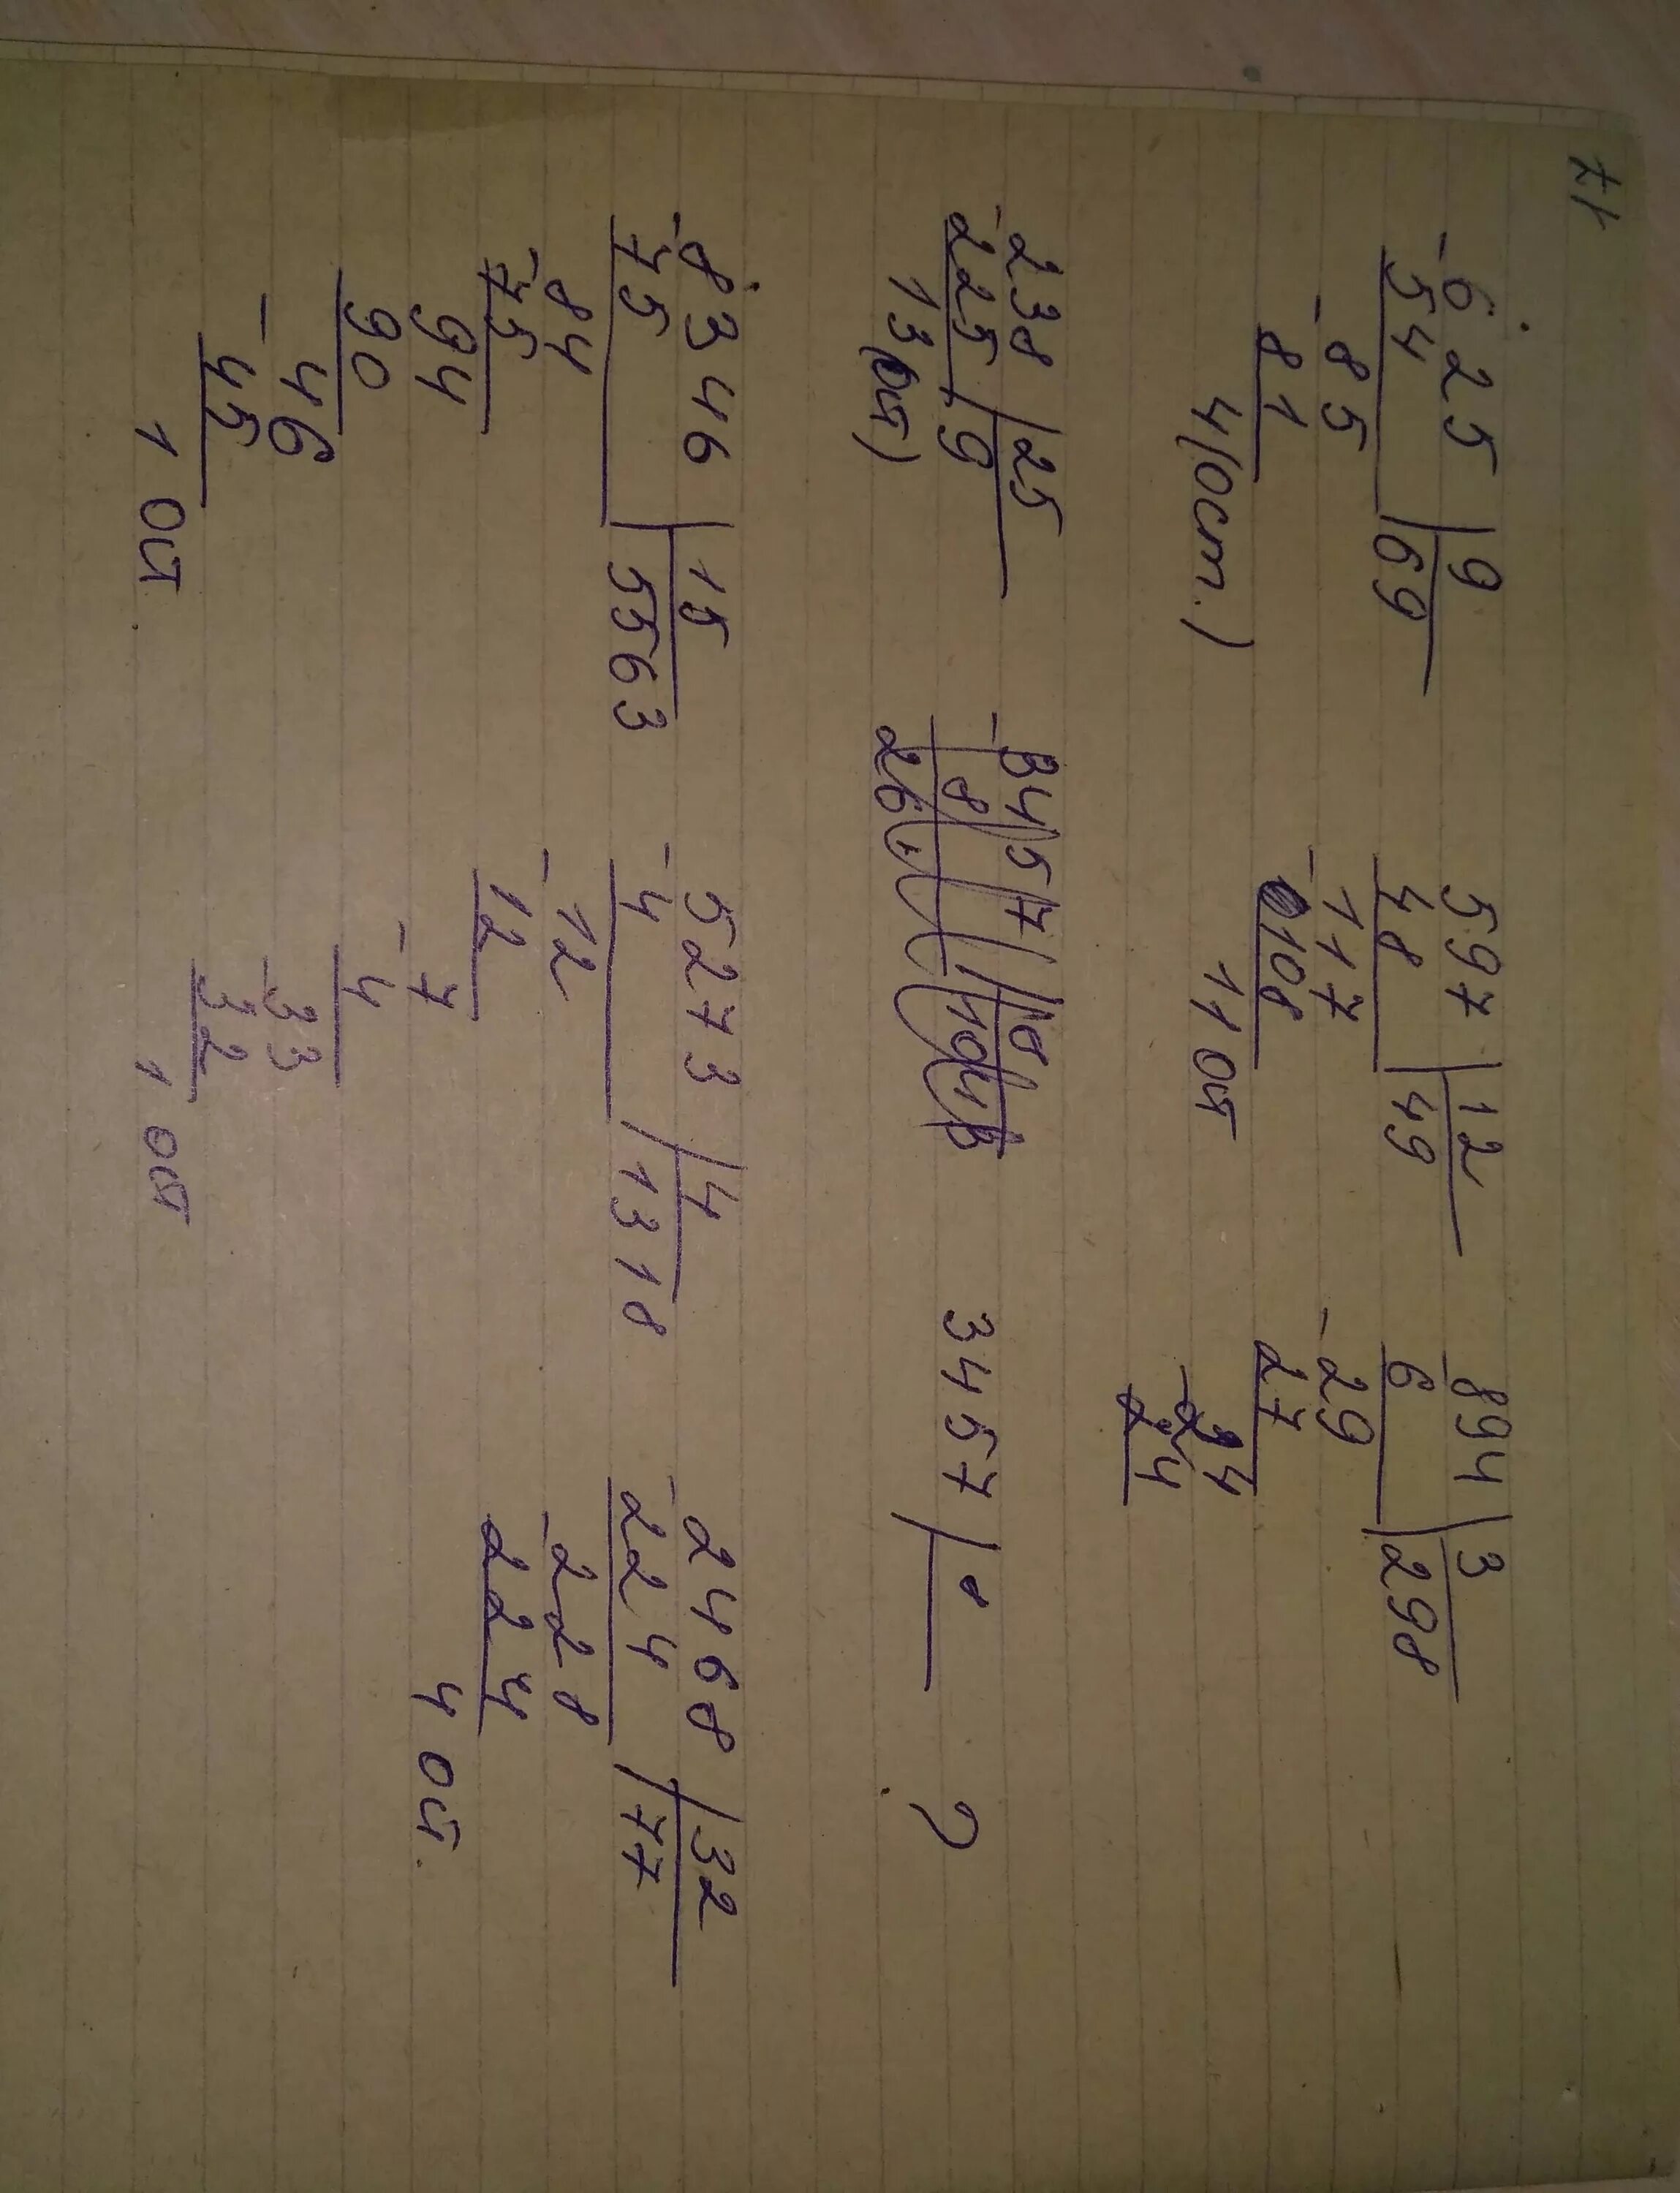 17
-625 | 9
54 | 69
-85
81
4 (ост.)
597 | 12
-48 | 49
-117
108
11 ост
-894 | 3
6 | 298
-29
27
-24
24
-238 | 25
225 | 9
13 (ост)
3457 | 8 ?
-8346 | 15
75 | 5563
84
-75
94
90
-46
45
1 ост.
5273 | 4
-4 | 1318
-12
12
-7
4
-33
32
1 ост
2468 | 32
-224 | 77
-228
224
4 ост.